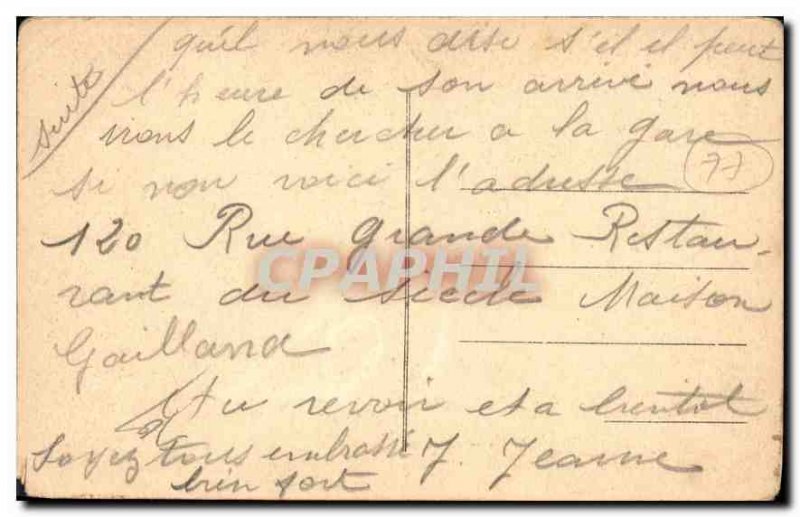 suite
qu'il nous dise s'il il peut
l'heure de son arrivé nous
irons le chercher a la gare
si non voici l'adresse
77
120 Rue Grande Restau-
rant du Siècle Maison
Gailland
CPAPHIL
Au revoir et a bientot
Soyez tous embrassé J. Jeanne
bien fort